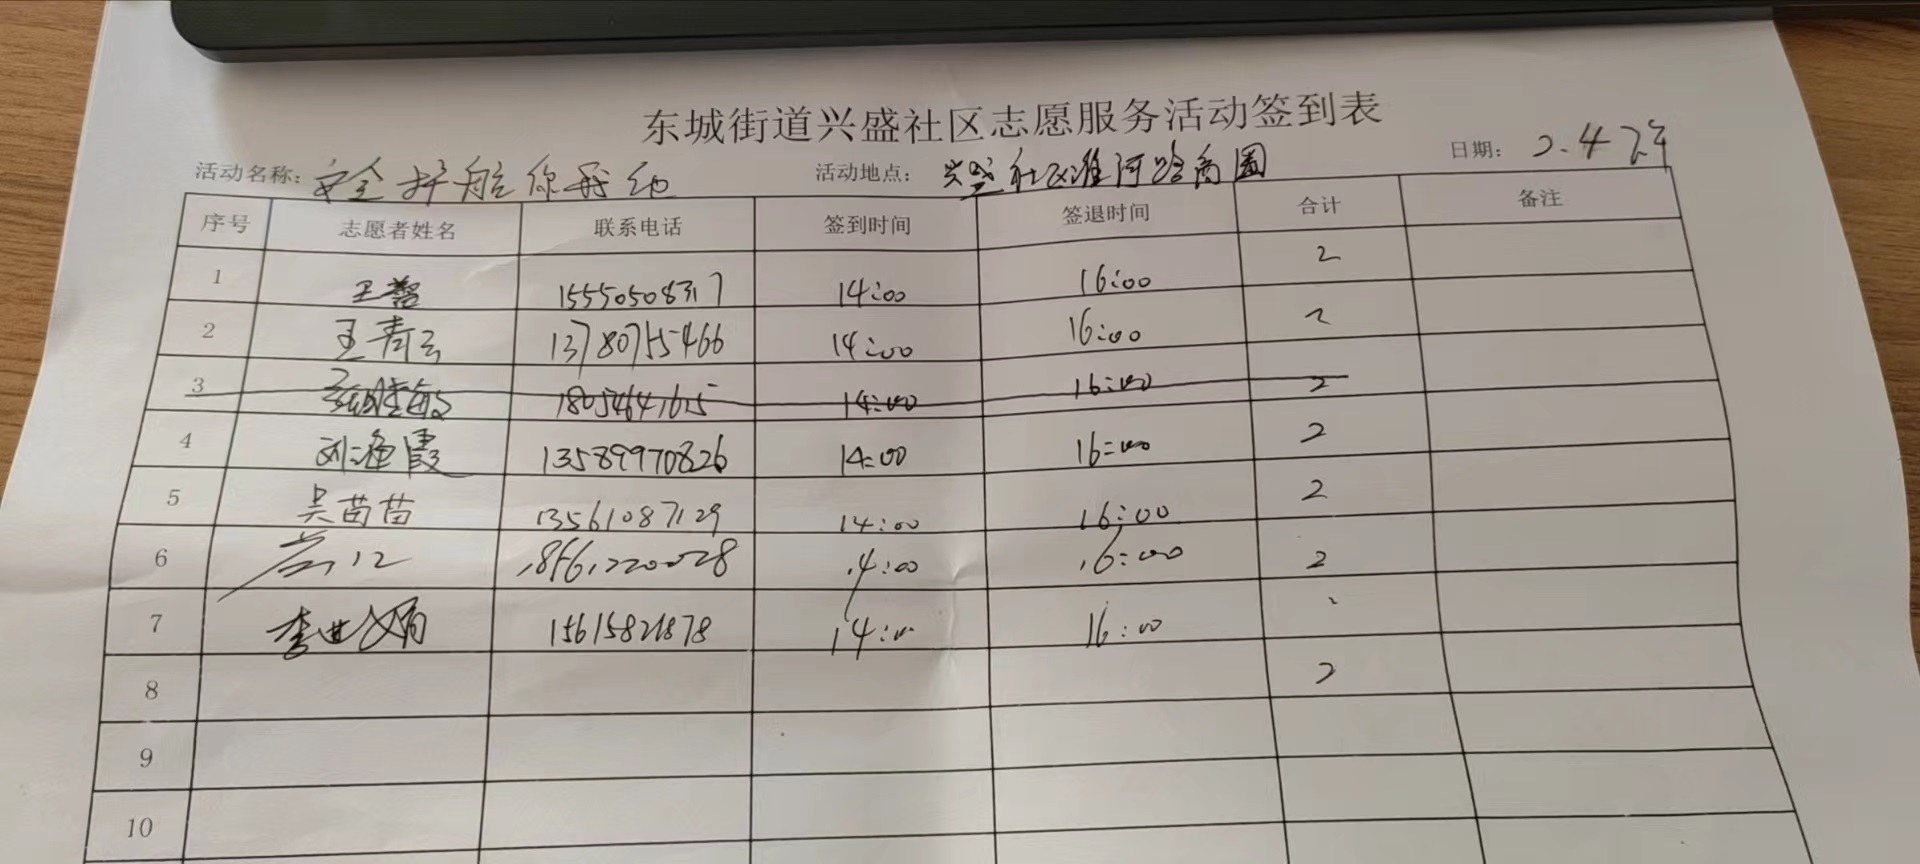 东城街道兴盛社区志愿服务活动签到表
活动名称: 安全护航你我他 活动地点: 兴盛社区淮河路商圈 日期: 2.4
序号 志愿者姓名 联系电话 签到时间 签退时间 合计 备注
1 王 15550508317 14:00 16:00 2
2 王青云 13780755466 14:00 16:00 2
3 18054641615 14:00 16:00 2
4 刘海霞 13589970826 14:00 16:00 2
5 吴苗苗 13561087129 14:00 16:00 2
6 14:00 16:00 2
7 李世娟 15615821878 14:00 16:00
8 2
9
10